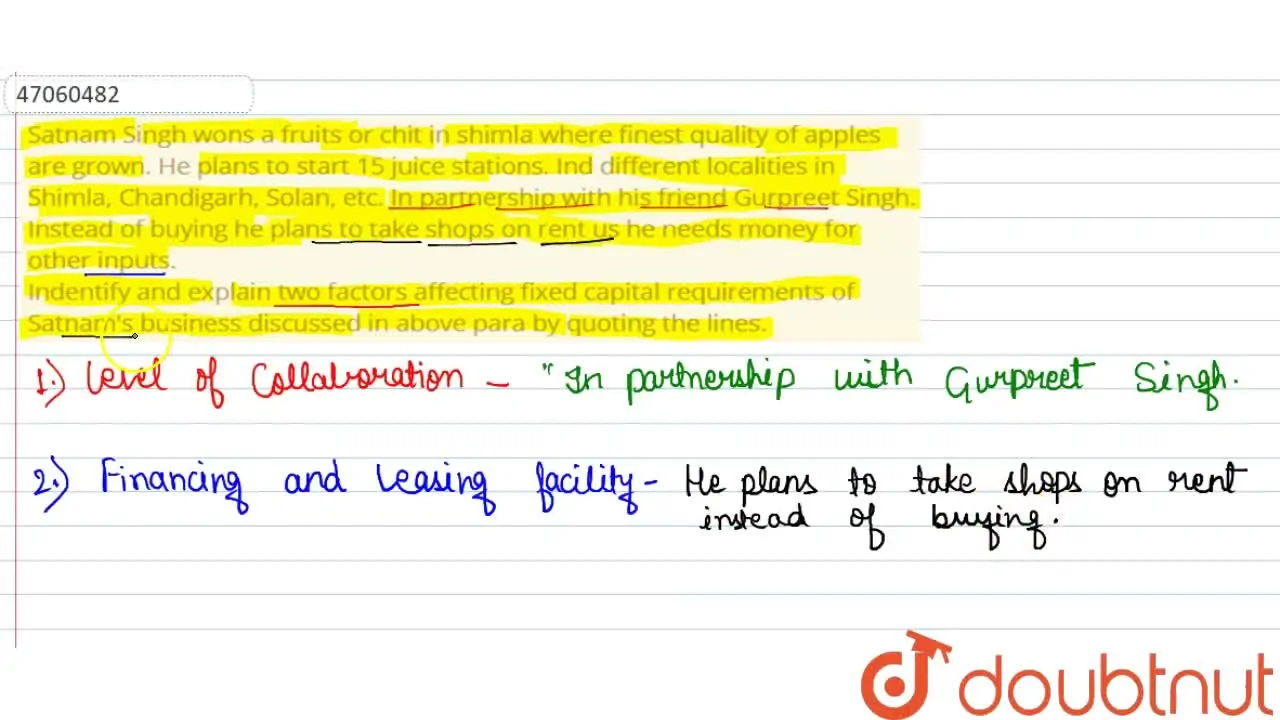 47060482
Satnam Singh wons a fruits or chit in shimla where finest quality of apples
are grown. He plans to start 15 juice stations. Ind different localities in
Shimla, Chandigarh, Solan, etc. In partnership with his friend Gurpreet Singh.
Instead of buying he plans to take shops on rent us he needs money for
other inputs.
Indentify and explain two factors affecting fixed capital requirements of
Satnam's business discussed in above para by quoting the lines.
1.) Level of Collaboration - "In partnership with Gurpreet Singh.
2.) Financing and Leasing facility - He plans to take shops on rent
instead of buying.
doubtnut